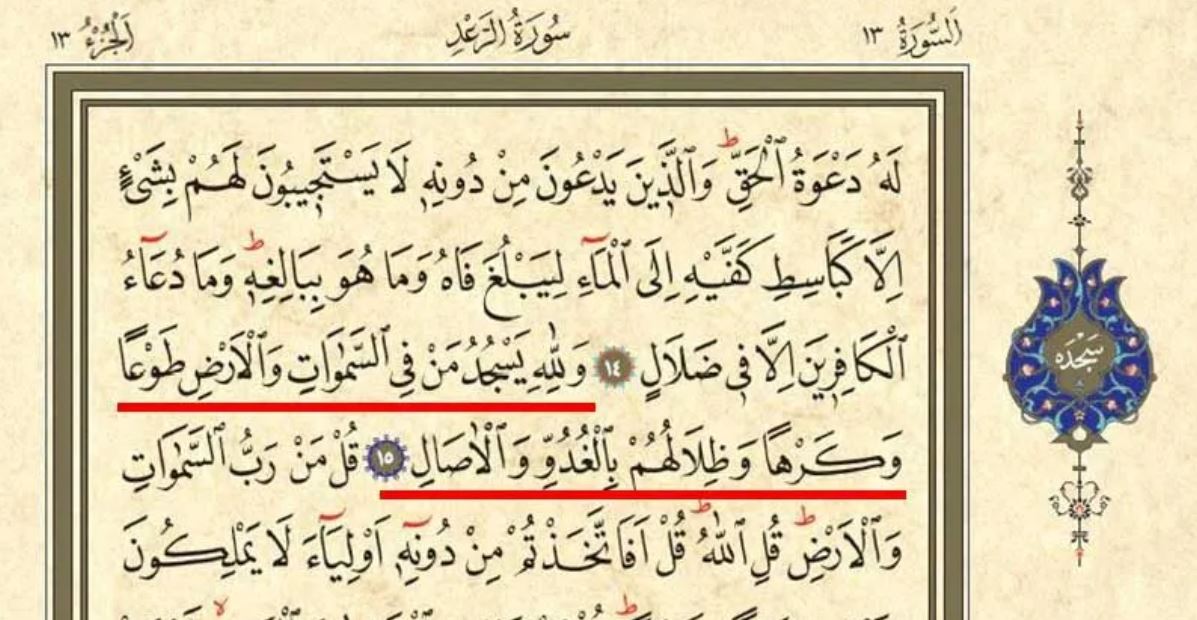 اَلسُّورَةُ ١٣
سُورَةُ الرَّعْدِ
اَلْجُزْءُ ١٣
لَهُ دَعْوَةُ الْحَقِّۜ وَالَّذ۪ينَ يَدْعُونَ مِنْ دُونِه۪ لَا يَسْتَج۪يبُونَ لَهُمْ بِشَيْءٍ
اِلَّا كَبَاسِطِ كَفَّيْهِ اِلَى الْمَٓاءِ لِيَبْلُغَ فَاهُ وَمَا هُوَ بِبَالِغِه۪ۜ وَمَا دُعَٓاءُ
الْكَافِر۪ينَ اِلَّا ف۪ي ضَلَالٍ ١٤ وَلِلّٰهِ يَسْجُدُ مَنْ فِي السَّمٰوَاتِ وَالْاَرْضِ طَوْعًا
وَكَرْهًا وَظِلَالُهُمْ بِالْغُدُوِّ وَالْاٰصَالِ ١٥ قُلْ مَنْ رَبُّ السَّمٰوَاتِ
وَالْاَرْضِۜ قُلِ اللّٰهُۜ قُلْ اَفَاتَّخَذْتُمْ مِنْ دُونِه۪ٓ اَوْلِيَٓاءَ لَا يَمْلِكُونَ
سَجْدَه